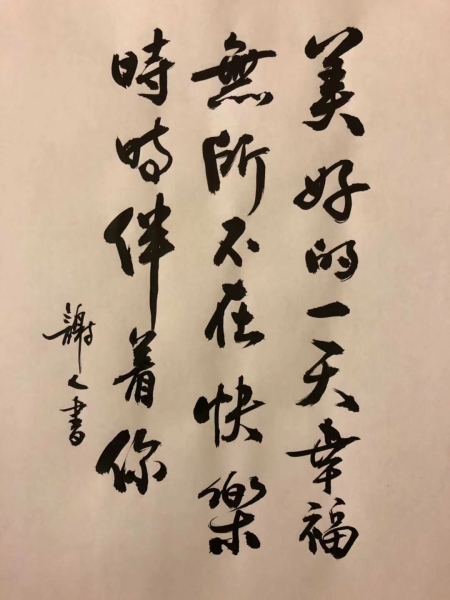 美好的一天幸福
無所不在快樂
時時伴着你
謝人書